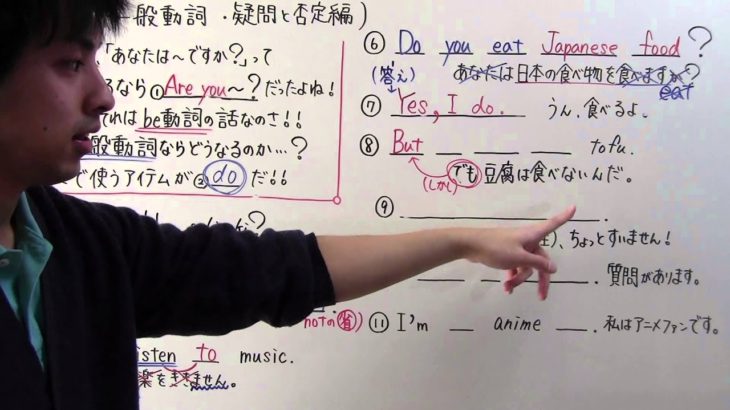 一般動詞・疑問と否定編)
「あなたは〜ですか?」って
なら①Are you〜?だったよね!
れはbe動詞の話なのさ!!
般動詞ならどうなるのか…?
で使うアイテムが②doだ!!
⑥ Do you eat Japanese food?
(答え) あなたは日本の食べ物を食べますか?
eat
⑦ Yes, I do. うん、食べるよ。
⑧ But ___ ___ ___ tofu.
(しかし) でも豆腐は食べないんだ。
⑨ ___.
、ちょっとすいません!
___ ___. 質問があります。
notの省)
⑪ I'm ___ anime ___. 私はアニメファンです。
isten to music.
楽をききません。